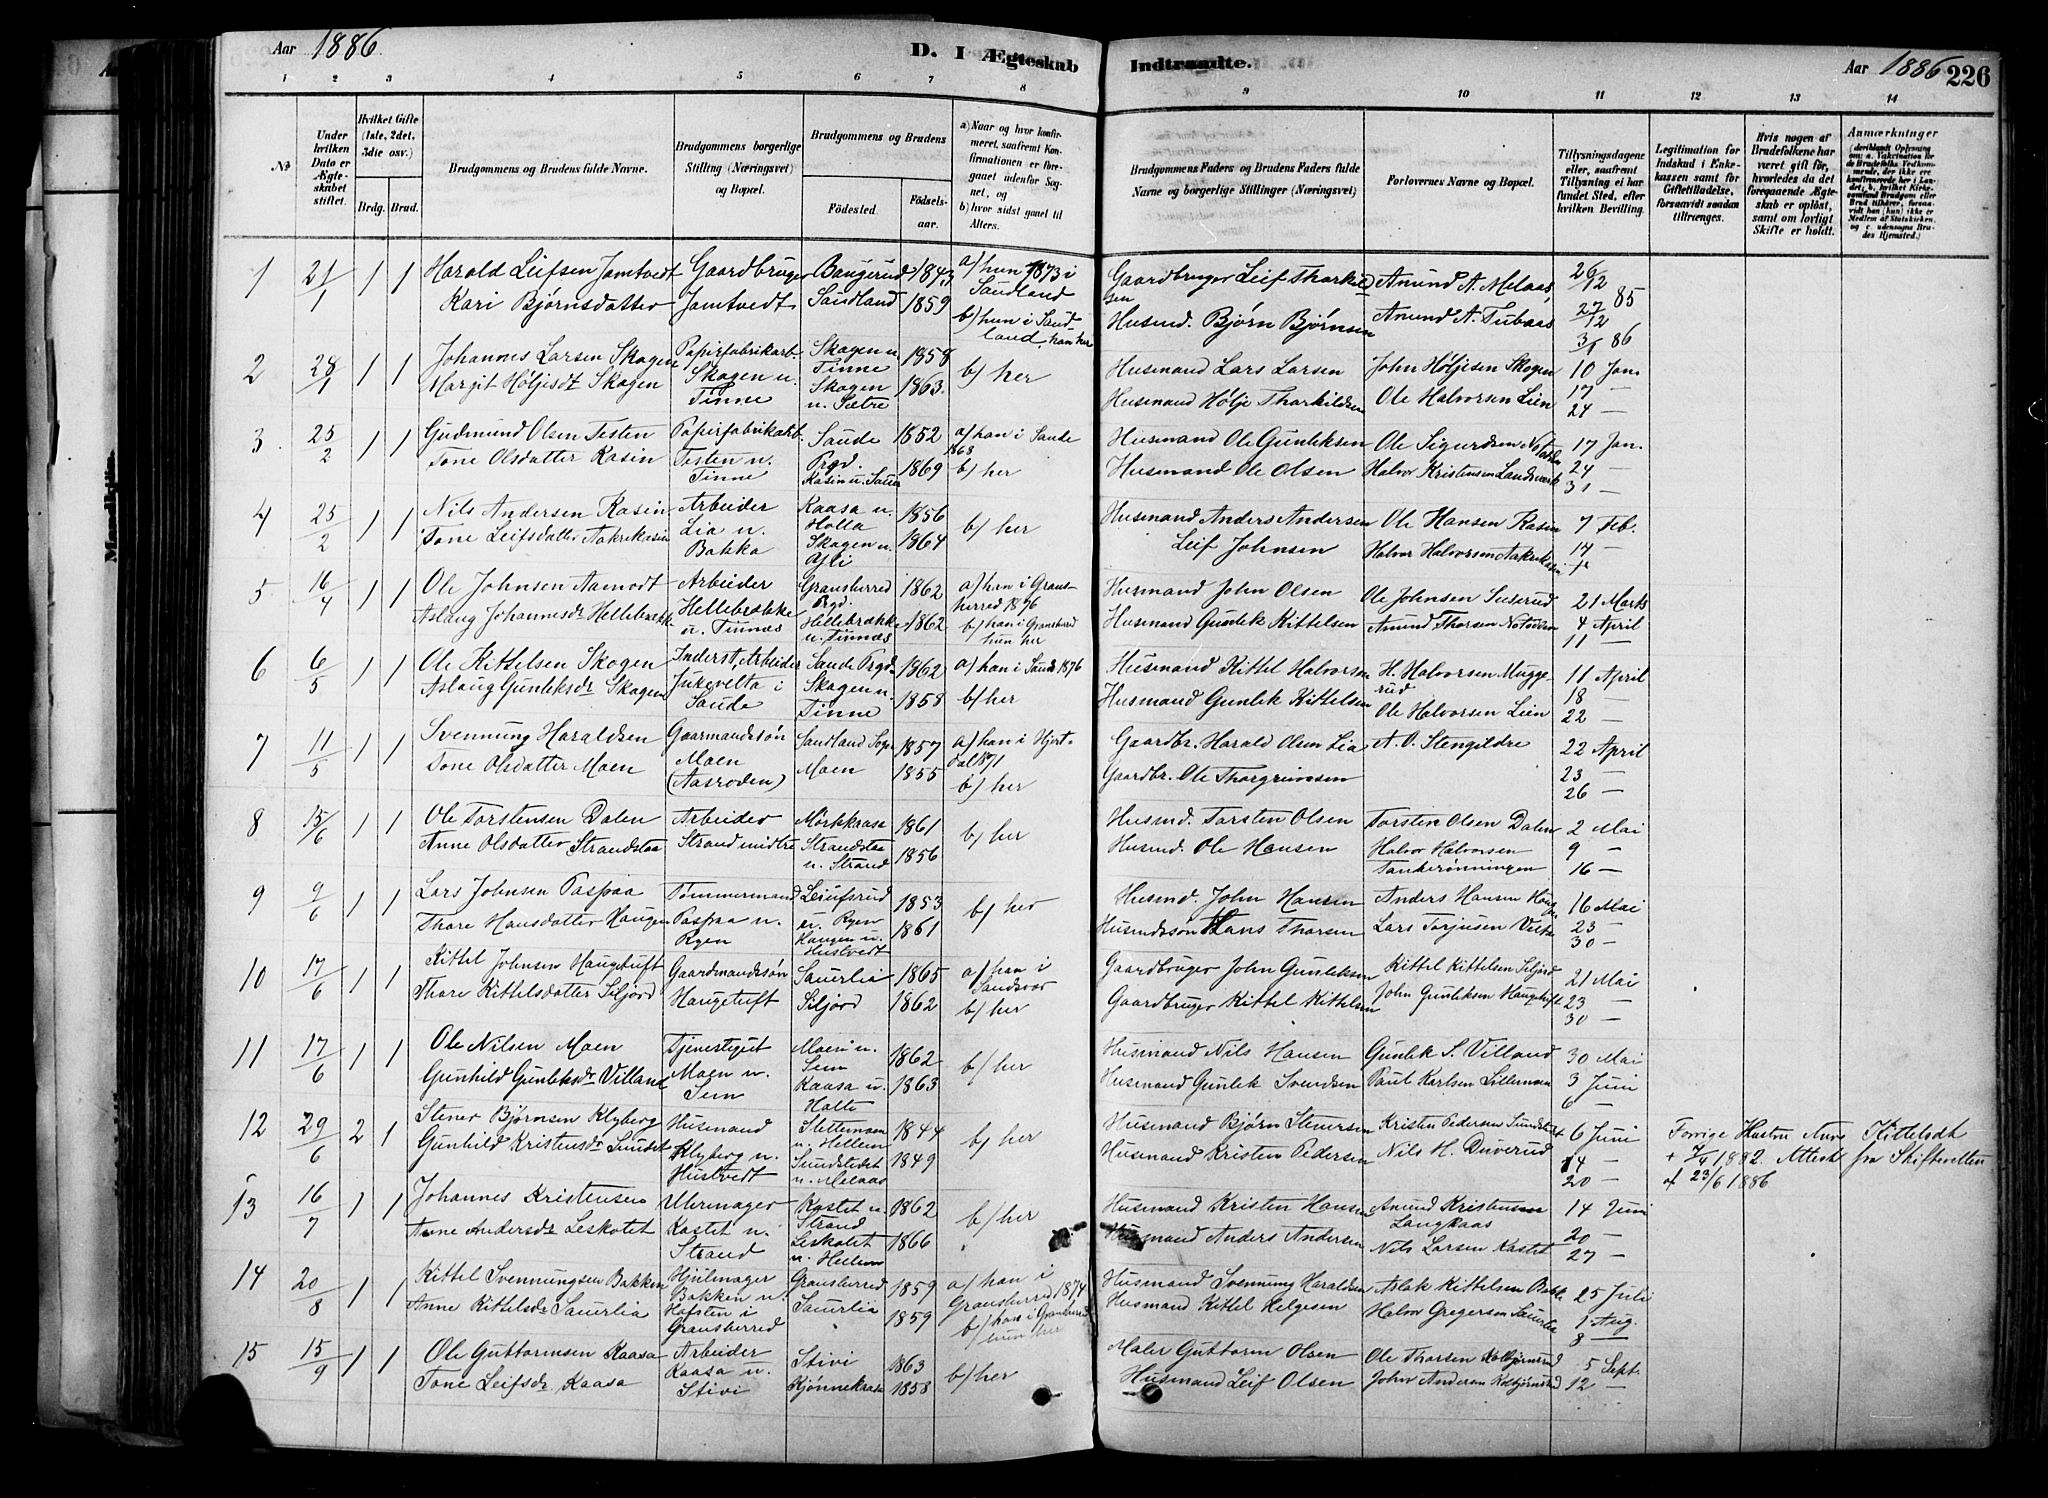 Aar 1886. D. I Ægteskab Indtraadte. Aar 1886 226
1 2 3 4 5 6 7 8 9 10 11 12 13 14
№
Under hvilken Dato er Ægteskabet stiftet.
Hvilket Gifte (1ste, 2det, 3die osv.)
Brdg. Brud.
Brudgommens og Brudens fulde Navne.
Brudgommens borgerlige Stilling (Næringsvei) og Bopæl.
Brudgommens og Brudens
Fødested. Fødselsaar.
a) Naar og hvor konfirmeret, saafremt Konfirmationen er foregaaet udenfor Sognet, og
b) hvor sidst gaaet til Alters.
Brudgommens Faders og Brudens Faders fulde Navne og borgerlige Stillinger (Næringsvei)
Forlovernes Navne og Bopæl.
Tillysningsdagene eller, saafremt Tillysning ei har fundet Sted, efter hvilken Bevilling.
Legitimation for Indskud i Enkekassen samt for Giftetilladelse, forsaavidt saadan tiltrænges.
Hvis nogen af Brudefolkene har været gift før, hvorledes da det foregaaende Ægteskab er opløst, samt om lovligt Skifte er holdt.
Anmærkninger
1 21/1 1 1 Harald Leifsen Jamtvedt Gaardbruger Baugerud 1843 a) hun 1873 i Saudland Gaardbruger Leif Tharkildsen Amund A. Melaas, 26/12
Kari Bjørnsdatter Jamtvedt Saudland 1859 b) hun i Saudland, han her Husmd. Bjørn Bjørnsen Amund A. Tubaas 27/12 85 3/1 86
2 28/1 1 1 Johannes Larsen Skogen Papirfabrikarb. Skogen u. Tinne 1858 b) her Husmand Lars Larsen John Høljesen Skogen 10 Jan.
Margit Høljesdr Skogen Skogen u. Tinne Skogen u. Sætre 1863. Husmand Hølje Tharkildsen Ole Halvorsen Lien 17 — 24 —
3 25/2 1 1 Gudmund Olsen Testen Papirfabrikarb. Saude Prgd. 1852 a) han i Saude 1868 Husmand Ole Gunleksen Ole Sigurdsen Notodden 17 Jan.
Tone Olsdatter Kasin Testen u. Tinne Kasin u. 1869 b) her Husmand Ole Olsen Halvor Kristensen Landsværk 24 — 31 —
4 25/2 1 1 Nils Andersen Kasin Arbeider Kaasa u. Holta 1856 b) her Husmand Anders Andersen Ole Hansen Kasin 7 Feb.
Tone Leifsdatter Aakrekasin Lia u. Bakka Skogen u. 1864 Leif Johnsen Halvor Halvorsen Aakrekasin 14 —
5 16/4 1 1 Ole Johnsen Aamodt Arbeider Gransherred Prgd. 1862 a) han i Gransherred 1876 Husmand John Olsen Ole Johnsen Suserud 21 Marts
Aslaug Johannesdr Hellebrække Hellebrække u. Tinnæs Hellebrække u. Tinnæs 1862 b) han i Gransherred hun her Husmand Gunlek Kittelsen Amund Thorsen Notodden 4 April 11 —
6 6/5 1 1 Ole Kittelsen Skogen Inderst, Arbeider Saude Prgd. 1862 a) han i Saude 1876 Husmand Kittel Halvorsen H. Halvorsen Muggerud 11 April
Aslaug Gunleksdr Skogen Jukevelta i Saude Skogen u. Tinne 1858 b) her Husmand Gunlek Kittelsen Ole Halvorsen Lien 18 — 22 —
7 11/5 1 1 Svennung Haraldsen Gaarmandssøn Saudland Sogn 1857 a) han i Hjortdal 1871 Gaardbr. Harald Olsen Lia A. O. Stengildre 22 April
Tone Olsdatter Moen Moen (Aasroden) Moen 1855 b) her Gaardbr. Ole Thorgrimsen 23 — 26 —
8 15/6 1 1 Ole Torstensen Dalen Arbeider Mørkkaasa 1861 b) her Husmd. Torsten Olsen Torsten Olsen Dalen 2 Mai
Anne Olsdatter Strandstaa Strand midtre Strandstaa u. Strand 1856 Husmd. Ole Hansen Halvor Halvorsen Tankerønningen 9 — 16 —
9 9/6 1 1 Lars Johnsen Paspaa Tømmermand Leiufsrud u. Ryen 1853 b) her Husmd. John Hansen Anders Hansen Haugen 16 Mai
Thore Hansdatter Haugen Paspaa u. Ryen Haugen u. Hustvedt 1861 Husmdssøn Hans Thorsen Lars Torjusen 23 — 30 —
10 17/6 1 1 Kittel Johnsen Haugetuft Gaardmandssøn Saurlia 1865 a) han i Sandsvær Gaardbruger John Gunleksen Kittel Kittelsen Siljord 21 Mai
Thore Kittelsdatter Siljord Haugetuft Siljord 1862 b) her Gaardbruger Kittel Kittelsen John Gunleksen Haugetuft 23 — 30 —
11 17/6 1 1 Ole Nilsen Moen Tjenestegut Moen u. Sem 1862 b) her Husmand Nils Hansen Gunlek S. Villand 30 Mai
Gunhild Gunleksdr Villand Moen u. Sem Kaasa u. Holte 1863 Husmand Gunlek Svendsen Paul Karlsen Lillemoen 3 Juni 6 —
12 29/6 2 1 Stener Bjørnsen Klyberg Husmand Slettemoen u. Hellem 1844 b) her Husmand Bjørn Stenersen Kristen Pedersen Sundstedt 6 Juni Forrige Hustru Anne Kittelsdt
Gunhild Kristensdr Sundet Klyberg u. Hustvedt Sundstedet u. Melaas 1849 Husmand Kristen Pedersen Nils H. Duverud 14 — 20 — + 7/4 1882. Attest fra Skifteretten af 23/6 1886
13 16/7 1 1 Johannes Kristensen Uhrmager Kastet u. Strand 1862 b) her Husmand Kristen Hansen Amund Kristensen Langkaas 14 Juni
Anne Andersdr Leskotet Kastet u. Strand Leskotet u. Hellem 1866 Husmand Anders Andersen Nils Larsen Kastet 20 — 27 —
14 20/8 1 1 Kittel Svennungsen Bakken Hjulmager Gransherred 1859 a) han i Gransherred 1874 Husmand Svennung Haraldsen Aslak Kittelsen 25 Juli
Anne Kittelsdr Saurlia Bakken u. Hafsten i Gransherred Saurlia 1859 b) han i Gransherred hun her Husmand Kittel Helgesen Halvor Gregersen Saurlia 1 Aug. 8 —
15 15/9 1 1 Ole Guttormsen Kaasa Arbeider Stivi 1863 b) her Maler Guttorm Olsen Ole Thorsen Kolbjørnsrud 5 Sept.
Tone Leifsdr Kaasa Kaasa u. Stivi Kjønnekaasa 1858 Husmand Leif Olsen John Andersen 12 —